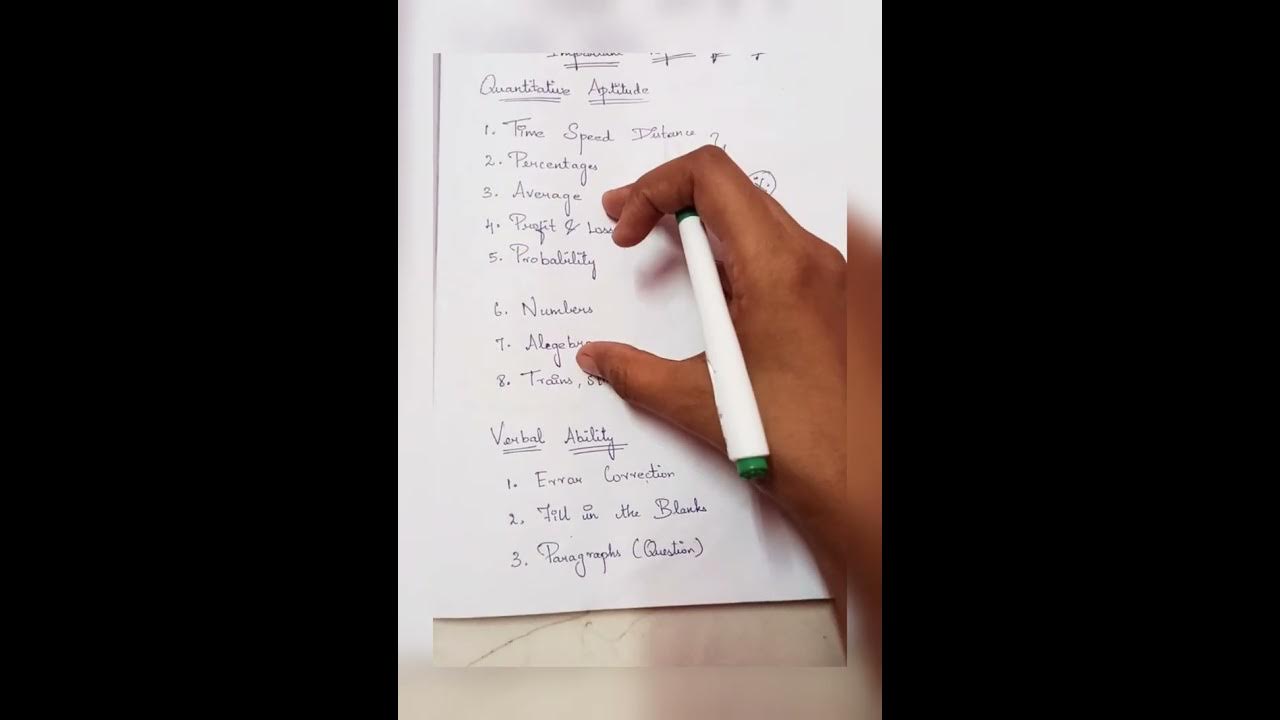 Important
Quantitative Aptitude
1. Time Speed Distance
2. Percentages
3. Average
4. Profit & Loss
5. Probability
6. Numbers
7. Alegebra
8. Trains,
Verbal Ability
1. Errar Correction
2. Fill in the Blanks
3. Paragraphs (Question)